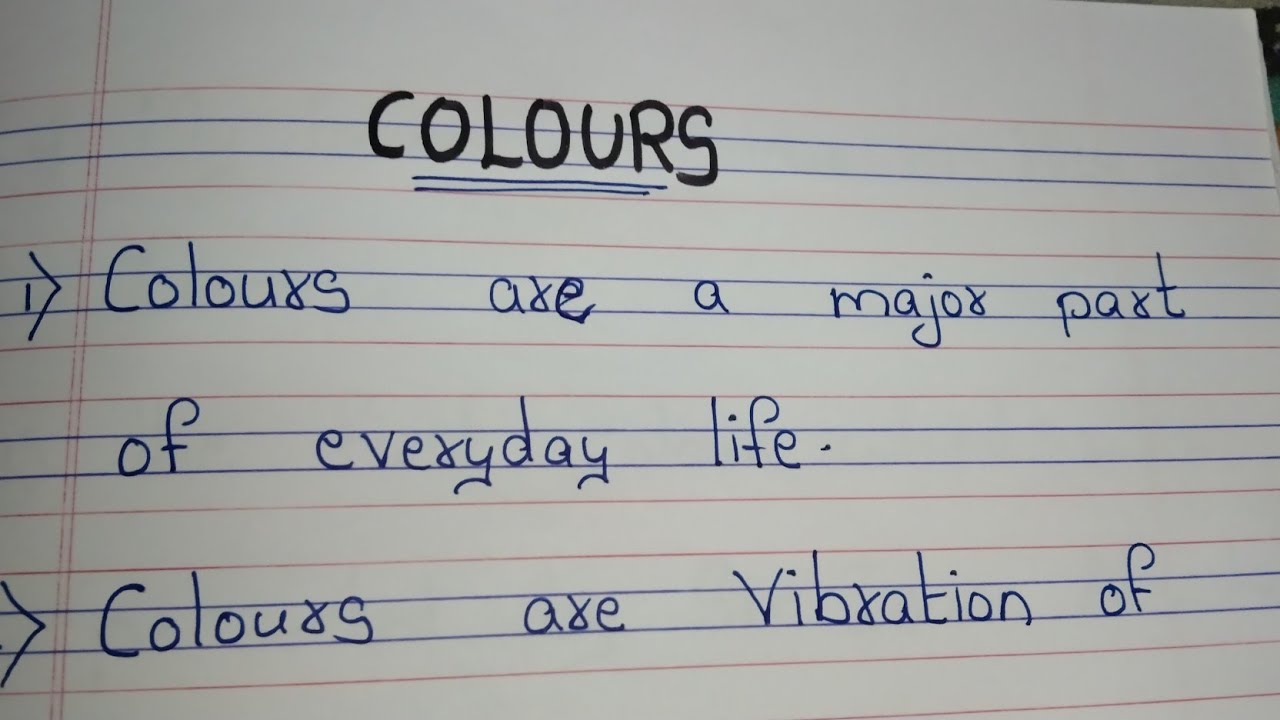 COLOURS
1) Colours are a major part
of everyday life.
) Colours are Vibration of